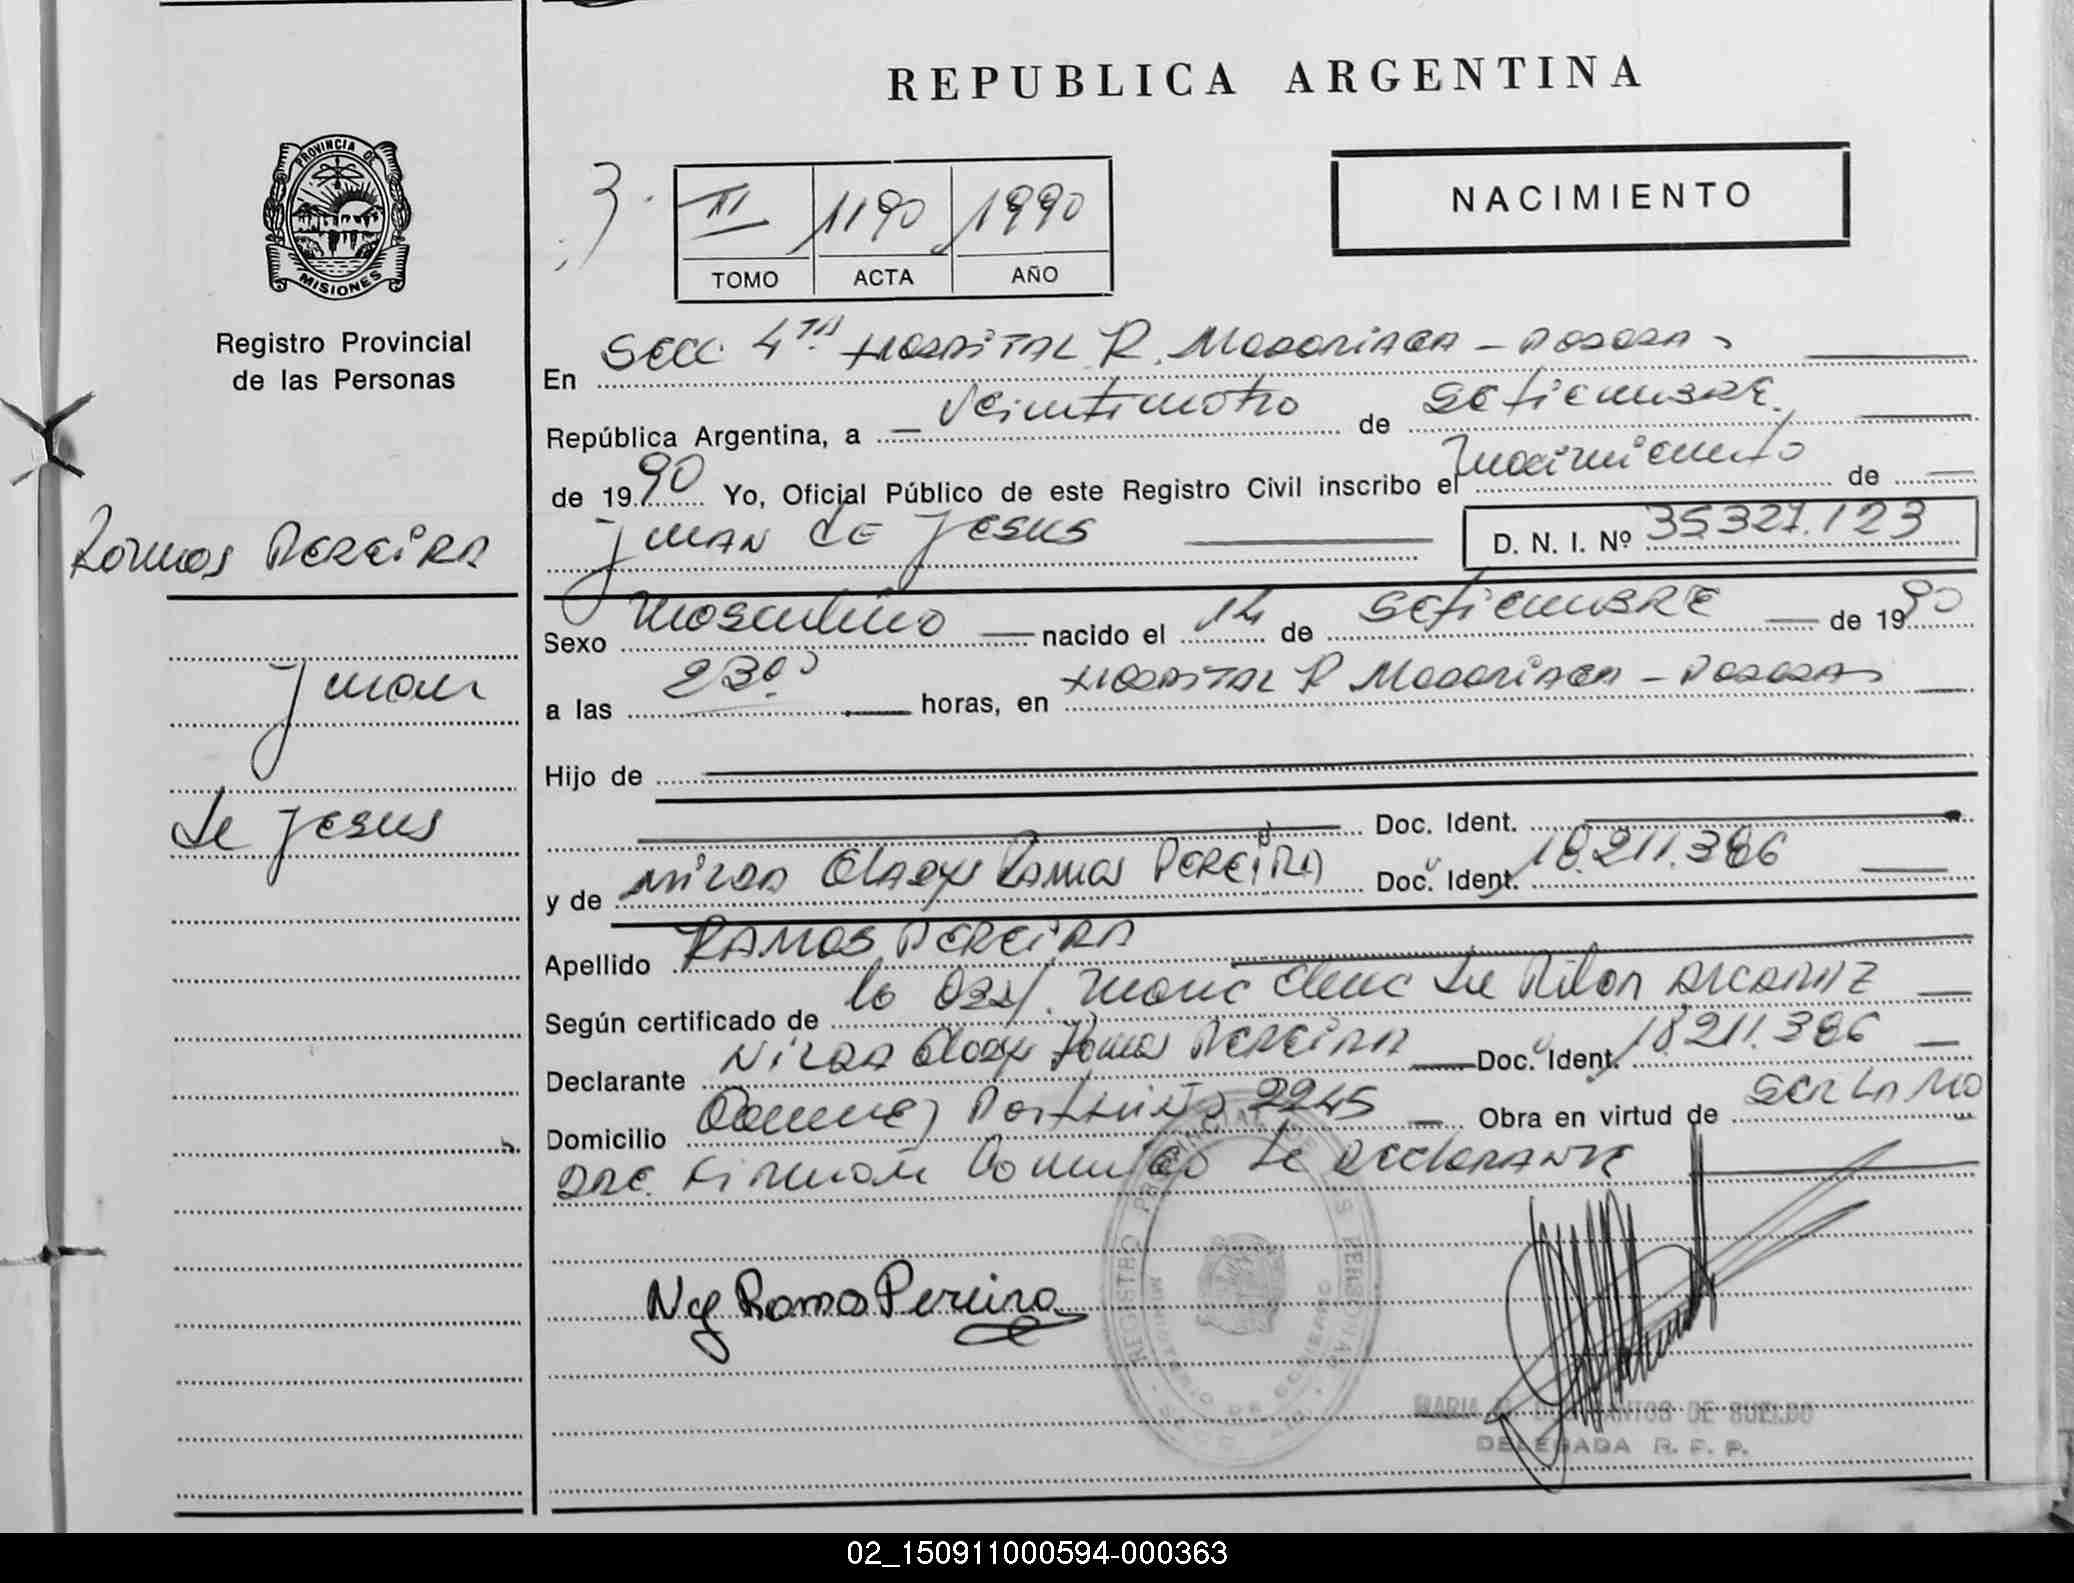 REPUBLICA ARGENTINA
PROVINCIA DE
MISIONES
Registro Provincial
de las Personas
3.
III 1190 1990
TOMO ACTA AÑO
NACIMIENTO
En Secc 4TA Hospital R. Madariaga - Posadas
República Argentina, a veinticuatro de setiembre
de 1990 Yo, Oficial Público de este Registro Civil inscribo el nacimiento de
Juan de Jesus D. N. I. Nº 35327.123
Ramos Pereira
Juan
de Jesus
Sexo Masculino nacido el 14 de setiembre de 1990
a las 23 horas, en Hospital R Madariaga - Posadas
Hijo de
Doc. Ident.
y de Nilda Gladys Ramos Pereira Doc. Ident. 18.211.386
Apellido Ramos Pereira
Según certificado de la Obst. Elena de Pilar
Declarante Nilda Gladys Ramos Pereira Doc. Ident. 18.211.386
Domicilio 2245 Obra en virtud de ser la ma
dre. Firman conmigo la declarante
Ng Ramos Pereira
REGISTRO PROVINCIAL DE LAS PERSONAS
MINISTERIO DE GOBIERNO
MARIA DOS SANTOS DE SUELDO
DELEGADA R. P. P.
02_150911000594-000363